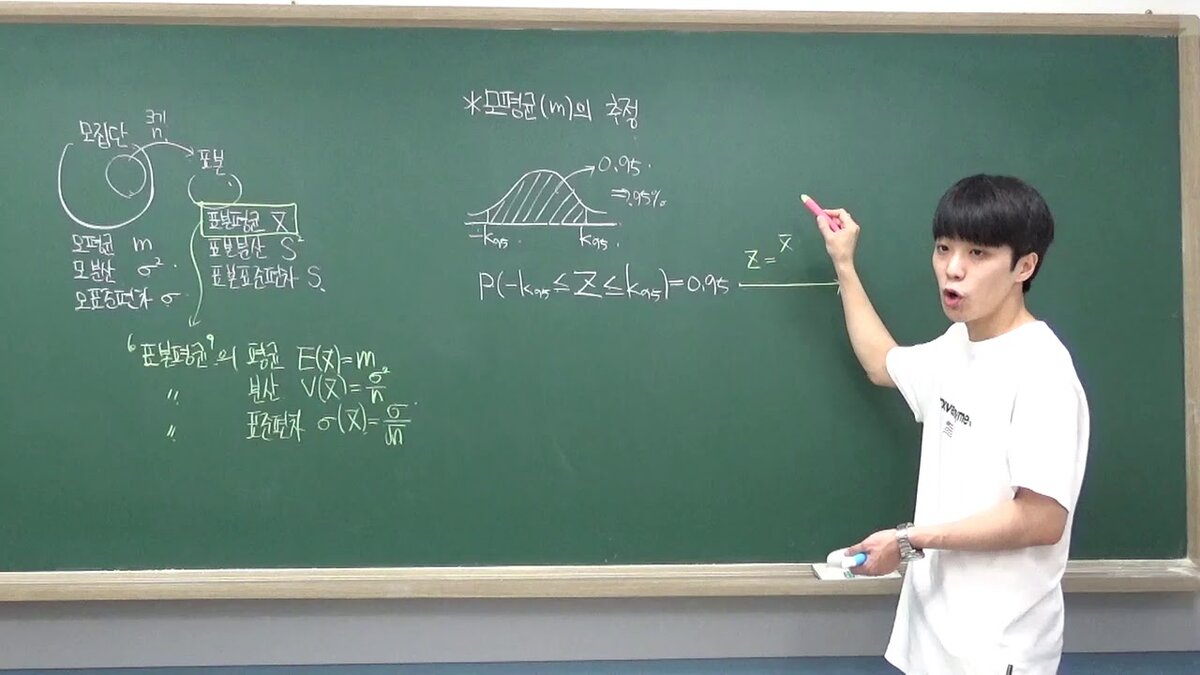 모집단
크기
n.
표본
표본평균 X̄
표본분산 S²
표본표준편차 S.
모평균 m
모분산 σ².
모표준편차 σ.
‘표본평균’의 평균 E(X̄)=m
〃 분산 V(X̄)=σ²/n
〃 표준편차 σ(X̄)=σ/√n
*모평균(m)의 추정
0.95.
⇒95%
-k₉₅. k₉₅.
P(-k₉₅≤Z≤k₉₅)=0.95
Z = X̄